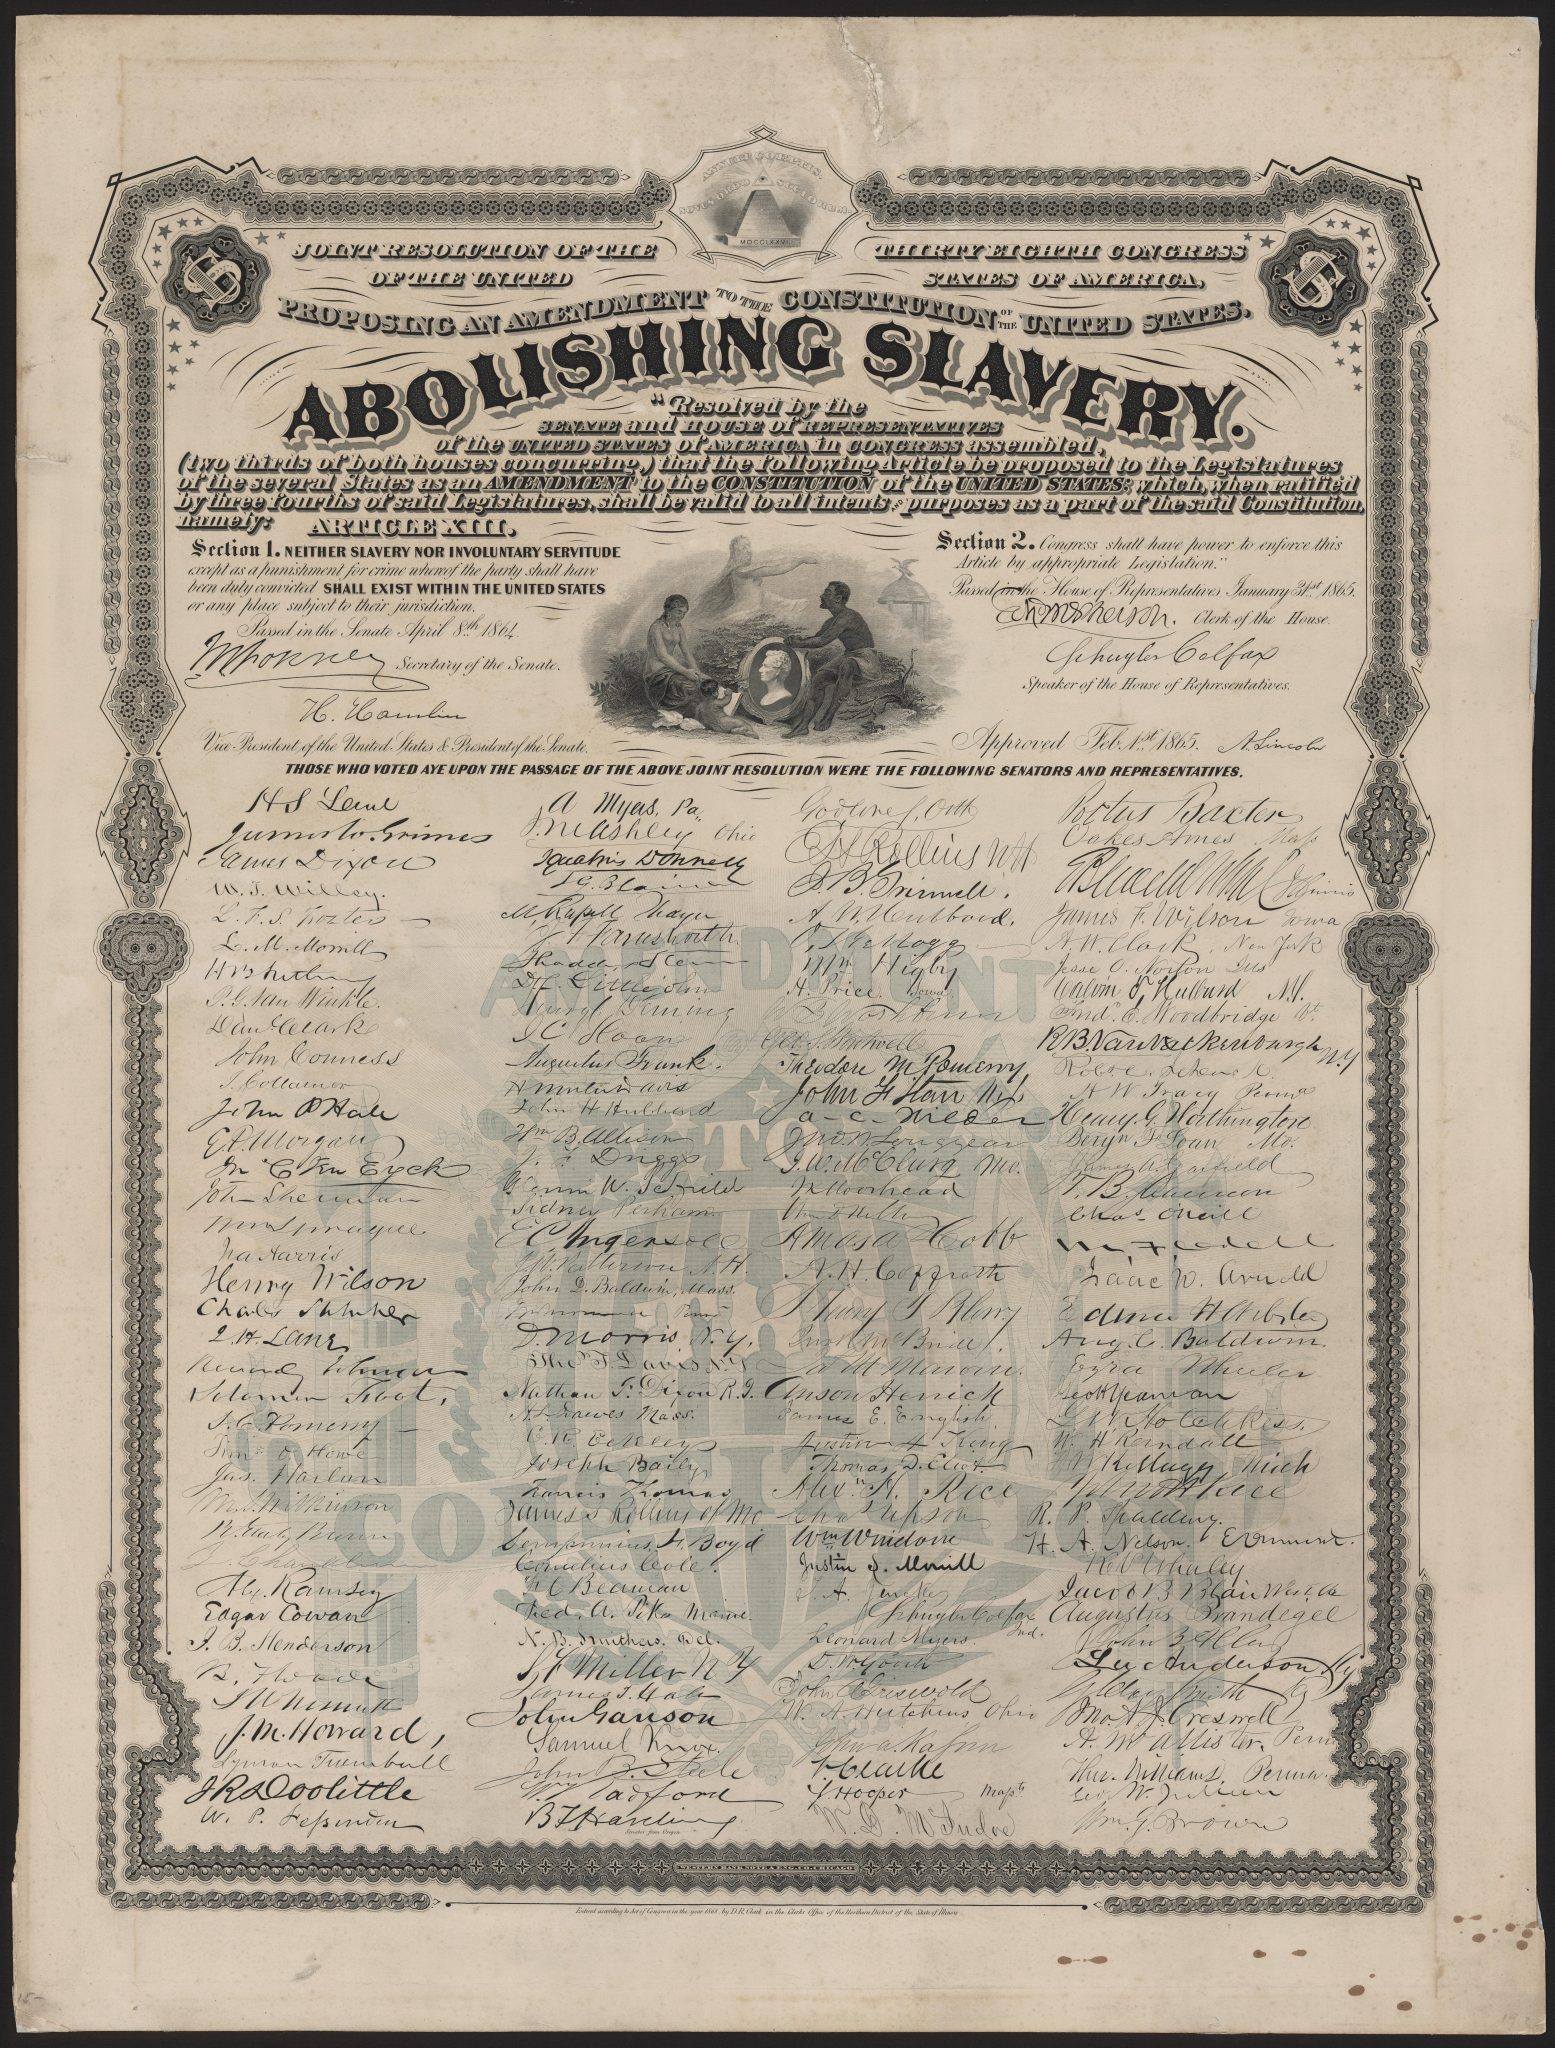 ANNUIT COEPTIS.
NOVUS ORDO SECLORUM.
MDCCLXXVI.
JOINT RESOLUTION OF THE THIRTY EIGHTH CONGRESS
OF THE UNITED STATES OF AMERICA,
PROPOSING AN AMENDMENT TO THE CONSTITUTION OF THE UNITED STATES.
ABOLISHING SLAVERY.
"Resolved by the
SENATE and HOUSE of REPRESENTATIVES
of the UNITED STATES of AMERICA in CONGRESS assembled,
(two thirds of both houses concurring,) that the following Article be proposed to the Legislatures
of the several States as an AMENDMENT to the CONSTITUTION of the UNITED STATES; which, when ratified
by three fourths of said Legislatures, shall be valid to all intents & purposes as a part of the said Constitution,
namely: ARTICLE XIII.
Section 1. NEITHER SLAVERY NOR INVOLUNTARY SERVITUDE
except as a punishment for crime whereof the party shall have
been duly convicted SHALL EXIST WITHIN THE UNITED STATES
or any place subject to their jurisdiction.
Passed in the Senate April 8th 1864.
Secretary of the Senate.
H. Hamlin
Vice President of the United States & President of the Senate.
Section 2. Congress shall have power to enforce this
Article by appropriate Legislation."
Passed in the House of Representatives January 31st 1865.
Clerk of the House.
Schuyler Colfax
Speaker of the House of Representatives.
Approved Feb. 1st 1865. A. Lincoln
THOSE WHO VOTED AYE UPON THE PASSAGE OF THE ABOVE JOINT RESOLUTION WERE THE FOLLOWING SENATORS AND REPRESENTATIVES.
AMENDMENT
TO
CONSTITUTION
H S Lane
James W. Grimes
James Dixon
W. T. Willey.
L. F. S. Foster
L. M. Morrill
P. G. Van Winkle.
Danl Clark
John Conness
J. Collamer
John P Hale
E. D. Morgan
Jn C Ten Eyck
John Sherman
Wm Sprague
Ira Harris
Henry Wilson
Charles Sumner
J. H. Lane
Reverdy Johnson
Solomon Foot,
S. C. Pomeroy
Timo O Howe
Jas. Harlan
M. S. Wilkinson
B. Gratz Brown
Z. Chandler
Alex. Ramsey
Edgar Cowan
J. B. Henderson
B. F. Wade
J W Nesmith
J. M. Howard,
Lyman Trumbull
J R Doolittle
W. P. Fessenden
A Myers, Pa,
J. M Ashley Ohio
Ignatius Donnelly
J G. Blaine
M. Russell Thayer
J F Farnsworth
Thadd. Stevens
D C Littlejohn
Henry C Deming
I C Sloan
Augustus Frank.
H Winter Davis
John H Hubbard
Wm B. Allison
J. F. Driggs
Glenni W. Scofield
Sidney Perham
E C Ingersoll
J. W. Patterson N. H.
John D. Baldwin, Mass.
D. Morris N. Y.
Thos T. Davis N. Y
Nathan F. Dixon R. I.
H. L Dawes Mass.
Joseph Baily
Francis Thomas
James S Rollins of Mo
Sempronius H. Boyd
Cornelius Cole.
F C Beaman
Fred. A. Pike Maine
N. B. Smithers. Del.
S F Miller N Y
James T. Hale
John Ganson
Samuel Knox.
John B. Steele
W Radford
B F Harding
Senator from Oregon
Godlove S. Orth
E H Rollins N H
J. B. Grinnell.
A. W. Hubbard.
O. Kellogg
Wm Higby
H. Price Iowa
Theodore M Pomeroy,
John F Starr N. J.
A. C. Wilder
Jno. W. Longyear
J. W. McClurg Mo.
J K Moorhead
Amasa Cobb
A. H. Coffroth
Henry T Blow
Jas. R. McBride.
J M Marvin
Anson Herrick
James E. English.
Austin A King
Thomas D. Eliot.
Alexr. H. Rice
Chas Upson
Wm Windom
Justin S. Morrill
T. A. Jenckes
Schuyler Colfax Ind.
Leonard Myers.
D. W. Gooch
John A Griswold
W. A. Hutchins Ohio
John A. Kasson
F. Clarke
S. Hooper Mass.
Portus Baxter
Oakes Ames Mass
James F. Wilson Iowa
A. W. Clark, New York
Jesse O. Norton Ills
Calvin T. Hulburd N.Y.
Fredk. E. Woodbridge Vt.
R B. Van Valkenburgh N. Y
Robt. C. Schenck
H W Tracy Penna
Henry G. Worthington
Benjn F Loan Mo.
James A. Garfield
Chas. O'Neill
Isaac N. Arnold
Edwin H Webster
Aug. C. Baldwin.
Ezra Wheeler
Geo H Yeaman
G. W. Hotchkiss.
W. H Randall
F. W. Kellogg Mich
John H Rice
R. P. Spalding.
H. A. Nelson.
K. V. Whaley
Jacob B Blair West. Va
Augustus Brandegee
John B. Alley
Lu. Anderson Ky
G Clay Smith Ky
Jno. A. J. Creswell
A. McAllister, Penn
Thos. Williams, Penna.
Geo. W. Julian
Wm. G. Brown
WESTERN BANK NOTE & ENG. CO. CHICAGO
Entered according to Act of Congress in the year 1868 by D. R. Clark in the Clerks Office of the Northern District of the State of Illinois